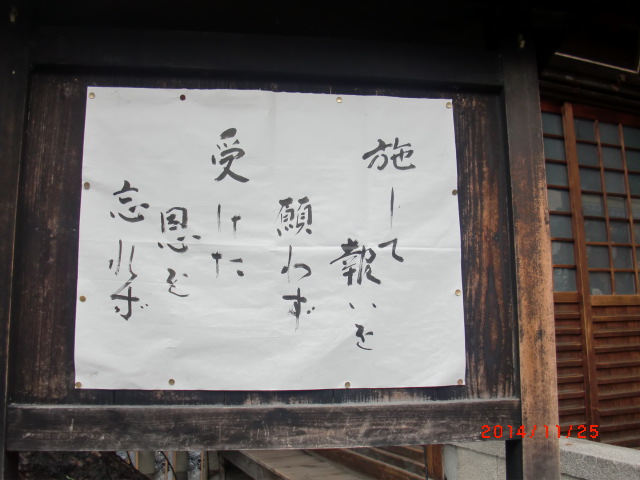 施して
報いを
願わず
受けた
恩を
忘れず
2014/11/25